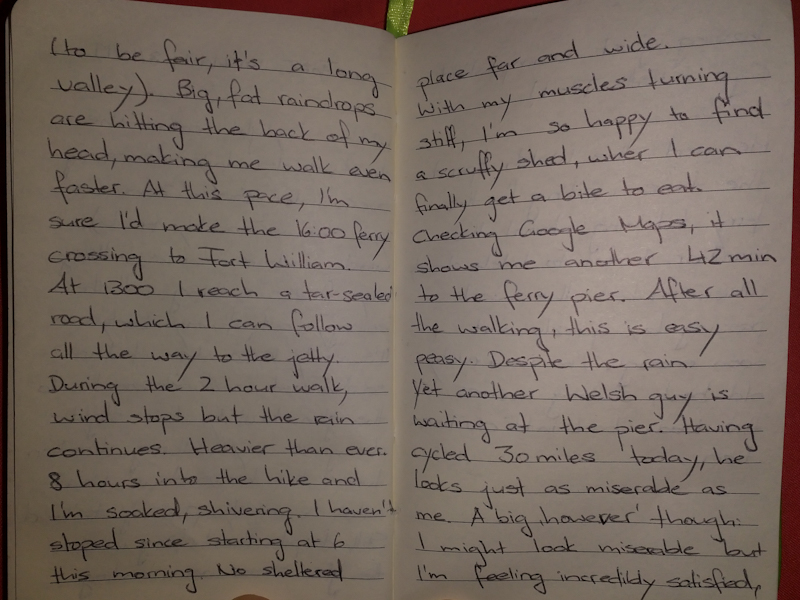 (to be fair, it's a long
valley). Big, fat raindrops
are hitting the back of my
head, making me walk even
faster. At this pace, I'm
sure I'd make the 16:00 ferry
crossing to Fort William.
At 1300 I reach a tar-sealed
road, which I can follow
all the way to the jetty.
During the 2 hour walk,
wind stops but the rain
continues. Heavier than ever.
8 hours into the hike and
I'm soaked, shivering. I haven't
stoped since starting at 6
this morning. No sheltered
place far and wide.
With my muscles turning
stiff, I'm so happy to find
a scruffy shed, wher I can
finally get a bite to eat.
Checking Google Maps, it
shows me another 42min
to the ferry pier. After all
the walking, this is easy
peasy. Despite the rain
Yet another Welsh guy is
waiting at the pier. Having
cycled 30 miles today, he
looks just as miserable as
me. A big 'however' though:
I might look miserable but
I'm feeling incredibly satisfied,